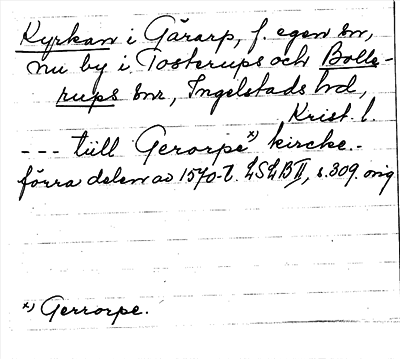 Kyrkan i Gärarp, f. egen sn,
nu by i Tosterups och Bolle-
rups snr, Ingelstads hd,
Krist. l.
--- tiill Gerorpe x) kircke.-
förra delen av 1570-t. LSLB II, s. 309. orig
x) Gerrorpe.